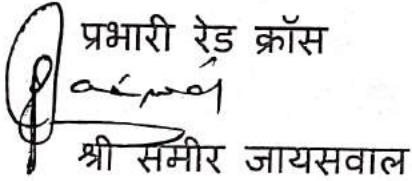 प्रभारी रेड क्रॉस
श्री समीर जायसवाल